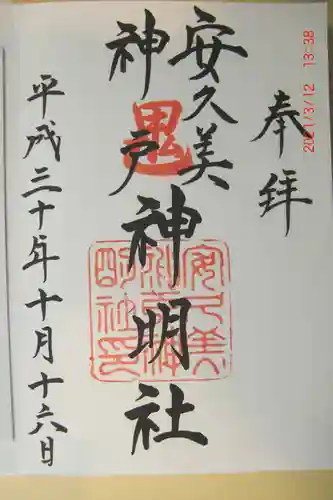 奉拝
安久美
神戸
神明社
平成三十年十月十六日
2021/3/12 13:38